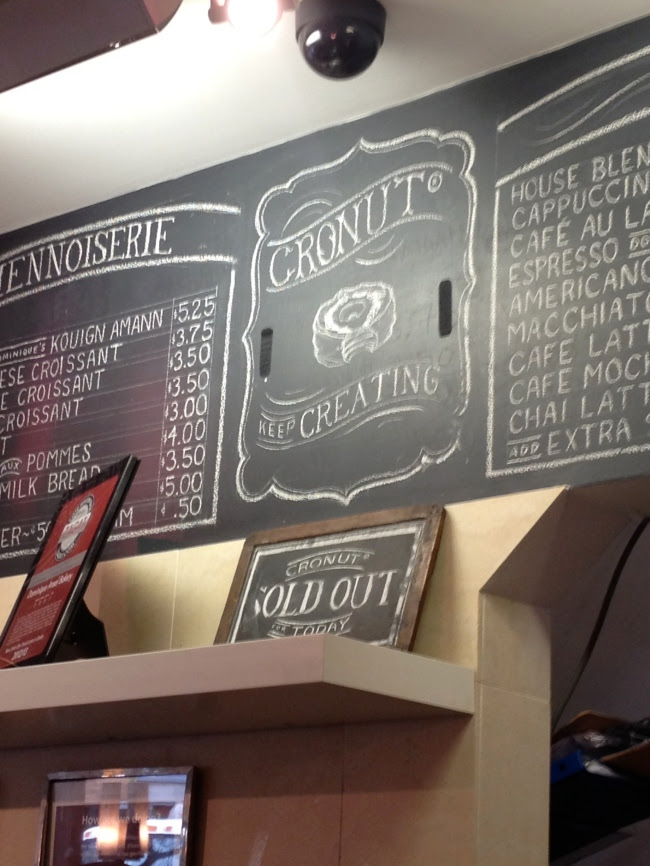 IENNOISERIE
DOMINIQUE'S KOUIGN AMANN $5.25
ESE CROISSANT $3.75
E CROISSANT $3.50
CROISSANT $3.50
T $3.00
AUX POMMES $4.00
MILK BREAD $3.50
$5.00
ER~50 M $.50
CRONUT®
KEEP CREATING
HOUSE BLEN
CAPPUCCIN
CAFÉ AU LA
ESPRESSO
AMERICANO
MACCHIATO
CAFE LATT
CAFE MOCH
CHAI LATT
ADD EXTRA
CRONUT
SOLD OUT
FOR TODAY
Dominique Ansel Bakery
How we d